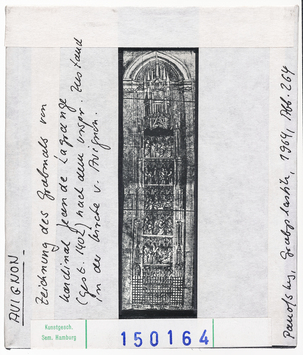 AVIGNON.
Zeichnung des Grabmals von
Kardinal Jean de Lagrange
(gest. 1402) nach dem urspr. Zustand
in der Kirche v. Avignon.
Panofsky, Grabplastik, 1964, Abb. 264
Kunstgesch.
Sem. Hamburg
150164